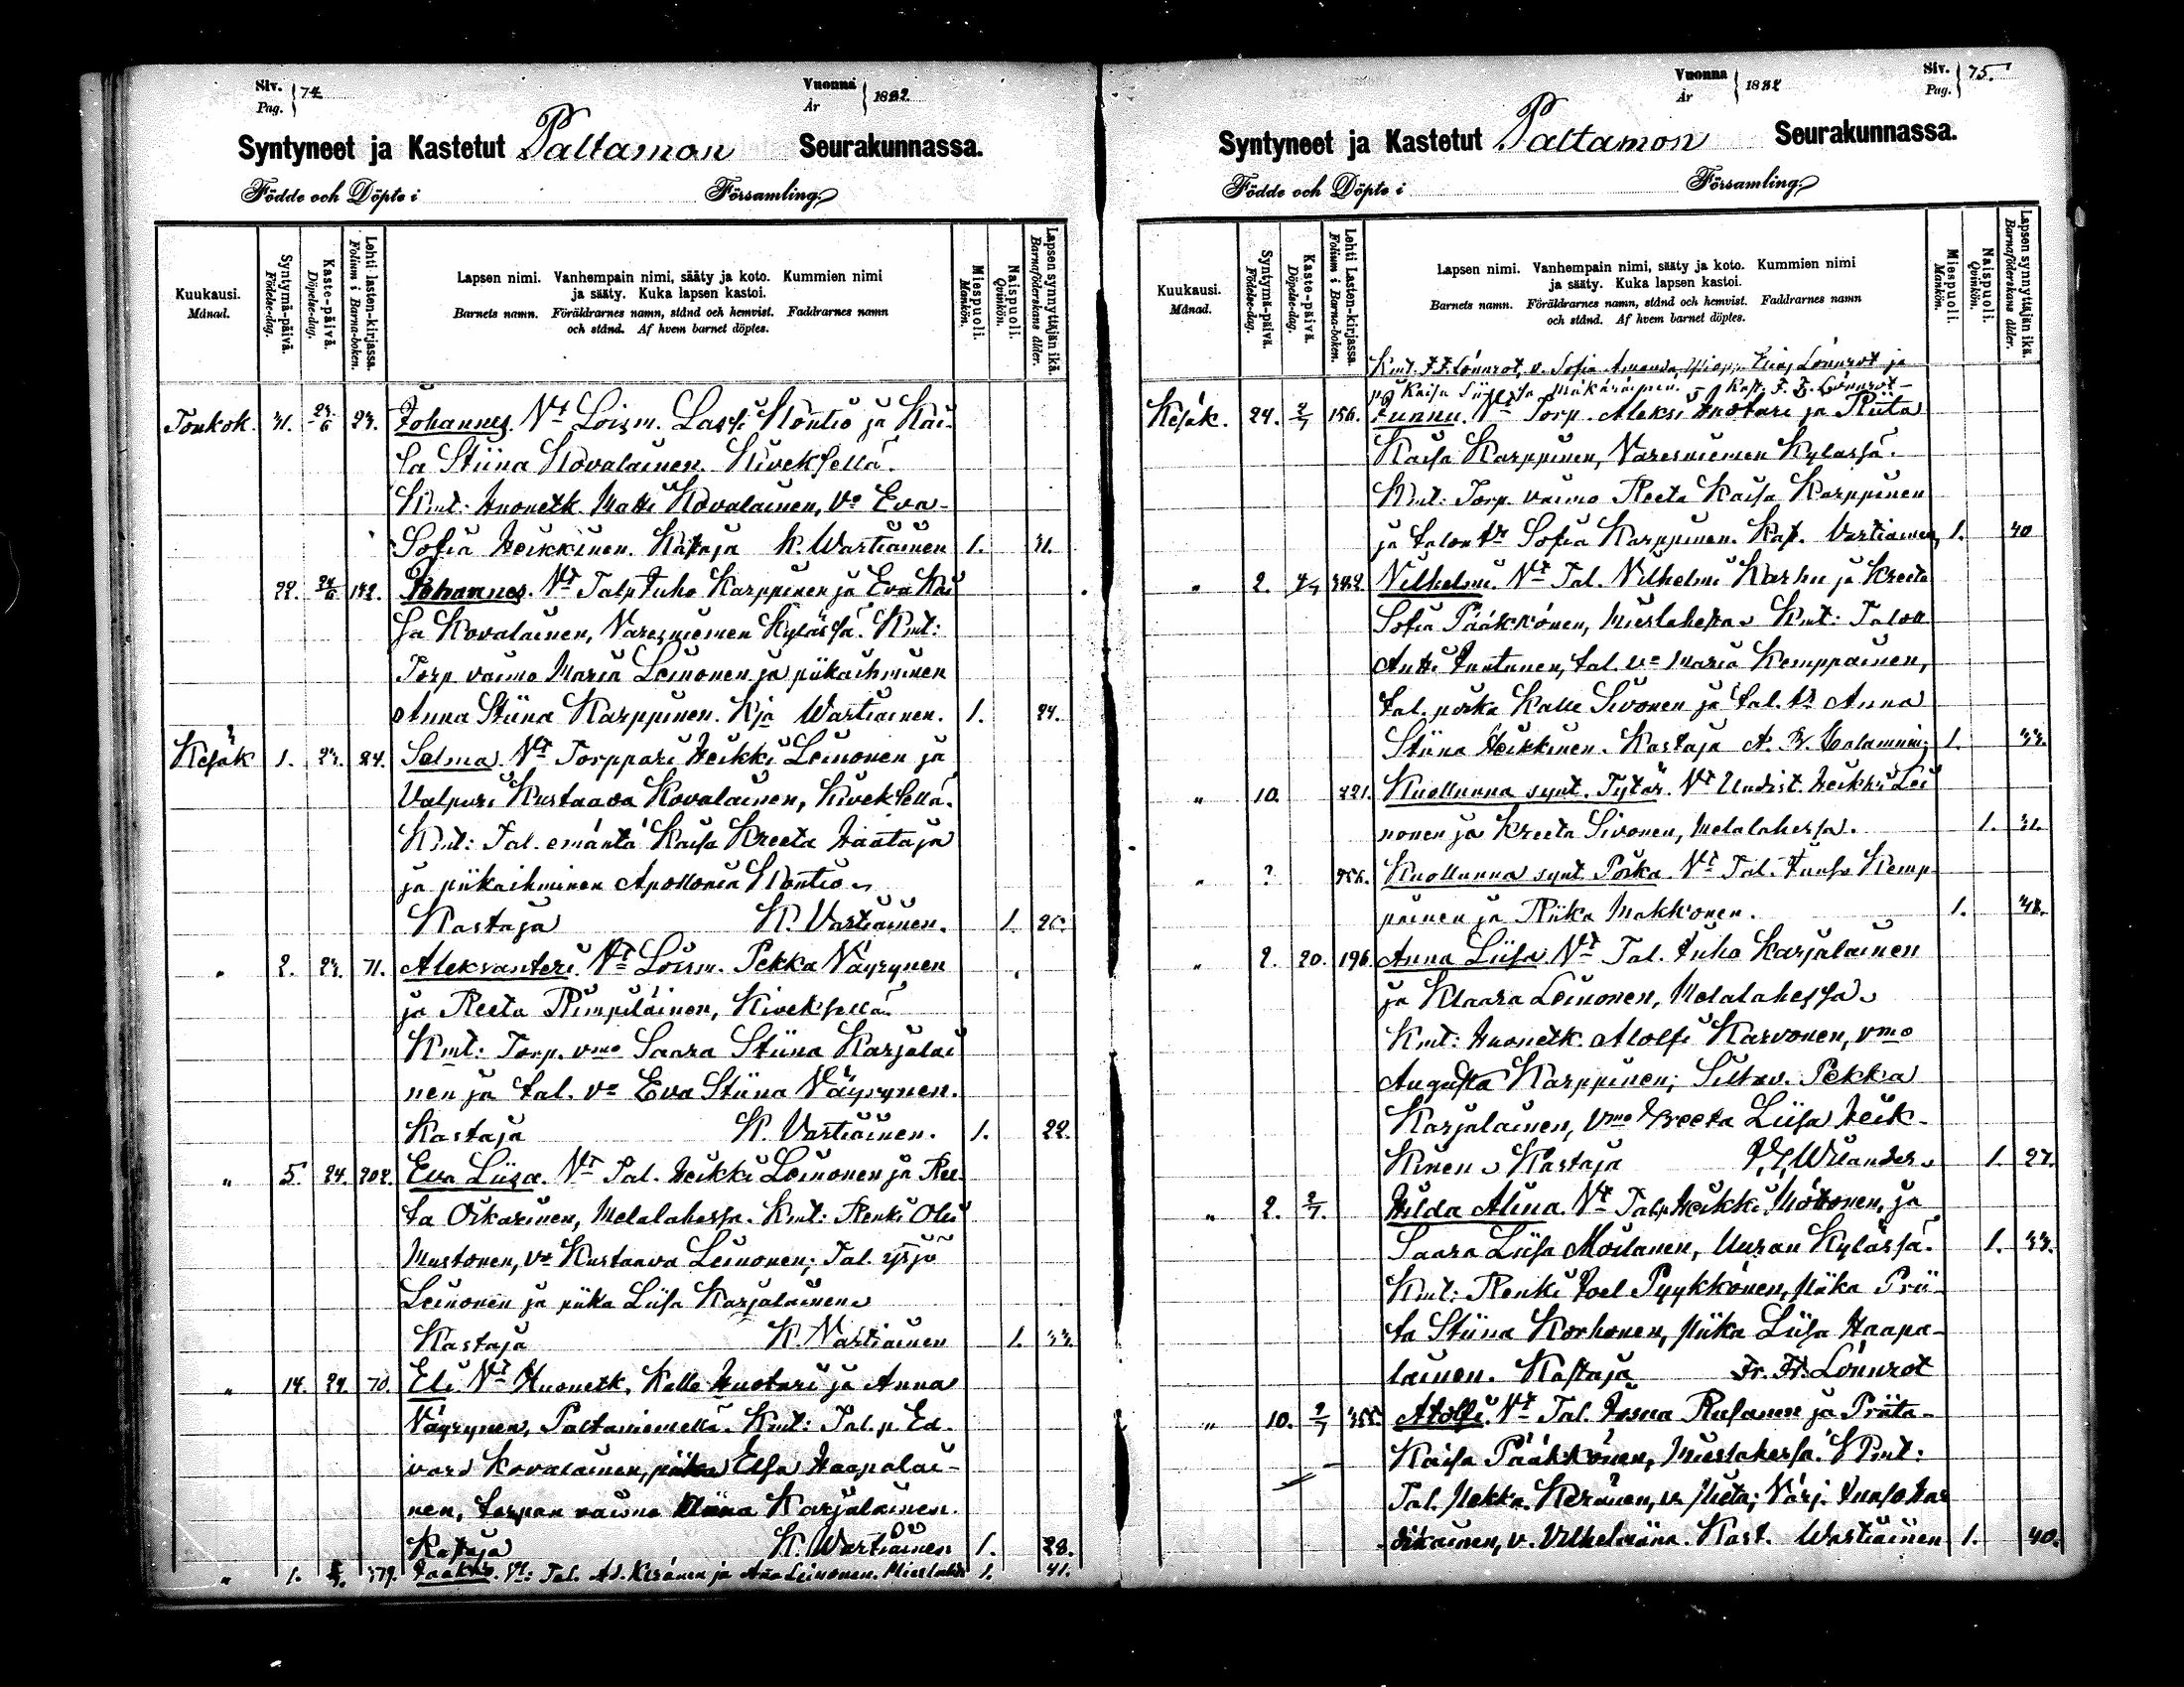 Siv. Pag. 74
Vuonna År 1882.
Syntyneet ja Kastetut Paltamon Seurakunnassa.
Födde och Döpte i Församling.
Kuukausi. Månad.
Syntymä-päivä. Födelse-dag.
Kaste-päivä. Döpelse-dag.
Lehti lasten-kirjassa. Folium i Barna-boken.
Lapsen nimi. Vanhempain nimi, sääty ja koto. Kummien nimi
ja sääty. Kuka lapsen kastoi.
Barnets namn. Föräldrarnes namn, stånd och hemvist. Faddrarnes namn
och stånd. Af hvem barnet döptes.
Miespuoli. Mankön.
Naispuoli. Qvinkön.
Lapsen synnyttäjän ikä. Barnaföderskans ålder.
Toukok. 31. 23/6 23. Johannes. Vt Loism. Lassi Kontio ja Kai-
sa Stiina Kovalainen. Kiveksellä.
Kmt: Huonetk. Matti Kovalainen, Vo Eva
Sofia Heikkinen. Kastaja K. Wartiainen 1. 31.
22. 24/6 142. Johannes. Vt Talp. Juho Karppinen ja Eva Kai
sa Kovalainen, Varesniemen Kylässä. Kmt:
Torp. vaimo Maria Leinonen ja piikaihminen
Anna Stiina Karppinen. Kja Wartiainen. 1. 24.
Kesäk 1. 23. 24. Selma. Vt Torppari Heikki Leinonen ja
Valpuri Kustaava Kovalainen, Kiveksellä.
Kmt: Tal. emäntä Kaisa Kreeta Haataja
ja piikaihminen Apollonia Kontio
Kastaja K. Vartiainen. 1. 26.
" 2. 23. 71. Aleksanteri. Vt Loism. Pekka Väyrynen
ja Reeta Rimpiläinen, Kiveksellä
Kmt: Torp. vmo Saara Stiina Karjalai
nen ja tal. vo Eva Stiina Väyrynen.
Kastaja K. Vartiainen. 1. 22.
" 5. 24. 202. Eva Liisa. Vt Tal. Heikki Leinonen ja Ree
ta Oikarinen, Melalahessa. Kmt: Renki Olli
Mustonen, vo Kustaava Leinonen; Tal. yrjö
Leinonen ja piika Liisa Karjalainen
Kastaja K. Vartiainen 1. 33.
" 14. 24. 70. Eli. Vt Huonetk. Kalle Huotari ja Anna
Väyrynen, Paltaniemellä. Kmt: Tal. p. Ed-
vard Kovalainen, piika Elsa Haapalai-
nen, torpan vaimo Karjalainen.
Kastaja K. Wartiainen 1. 28.
" 1. 379. Jaakko. Vt: Tal. Ad. Keränen ja Ana Leinonen. Mieslahti 1. 41.
Vuonna År 1882
Siv. Pag. 75.
Syntyneet ja Kastetut Paltamon Seurakunnassa.
Födde och Döpte i Församling.
Kuukausi. Månad.
Syntymä-päivä. Födelse-dag.
Kaste-päivä. Döpelse-dag.
Lehti Lasten-kirjassa. Folium i Barna-boken.
Lapsen nimi. Vanhempain nimi, sääty ja koto. Kummien nimi
ja sääty. Kuka lapsen kastoi.
Barnets namn. Föräldrarnes namn, stånd och hemvist. Faddrarnes namn
och stånd. Af hvem barnet döptes.
Miespuoli. Mankön.
Naispuoli. Qvinkön.
Lapsen synnyttäjän ikä. Barnaföderskans ålder.
Kmt. F. F. Lönnrot, v. Sofia Amanda, Elias Lönnrot ja
Kaisa Mäkäräinen. Kast. F. F. Lönnrot
Kesäk. 24. 2/7 156. Vt Torp. Aleksi Huotari ja Riita
Kaisa Karppinen, Varesniemen Kylässä.
Kmt: Torp. vaimo Reeta Kaisa Karppinen
ja talon tr Sofia Karppinen. Kast. Vartiainen, 1. 40
" 2. 382. Vilhelmi. Vt Tal. Vilhelmi Karhu ja Kreeta
Sofia Pääkkönen, Mieslahessa Kmt: Talon
Antti Juntunen, tal. vo Maria Kemppainen,
tal. poika Kalle Sivonen ja tal. tr Anna
Stiina Heikkinen. Kastaja A. B. Calamnius 1. 33.
" 10. 221. Kuolluna synt. Tytär. Vt Uudist. Heikki Lei
nonen ja Kreeta Sivonen, Melalahessa. 1. 31.
" ? 456. Kuolluna synt. Poika. Vt Tal. Kemp
painen ja Riika Makkonen. 1. 48.
" 2. 20. 196. Anna Liisa. Vt Tal. Juho Karjalainen
ja Klaara Leinonen, Melalahessa
Kmt: Huonetk. Atolfi Karvonen, vmo
Augusta Karppinen; Siltav. Pekka
Karjalainen, vmo Kreeta Liisa Heik-
kinen Kastaja Wilander 1. 27.
" 2. 2/7. Hilda Alina. Vt Talp. Heikki Möttönen, ja
Saara Liisa Moilanen, Uuran Kylässä. 1. 33.
Kmt: Renki Joel Pyykkönen, Piika Prii-
ta Stiina Korhonen, Piika Liisa Haapa-
lainen. Kastaja Fr. Fr. Lönnrot
" 10. 2/7 355. Atolfi. Vt Tal. Rusanen ja Priita
Kaisa Pääkkönen, Mieslahessa. Kmt:
Tal. Pekka Keränen, v. ; Värj.
v. Vilhelmiina. Kast. Wartiainen 1. 40.